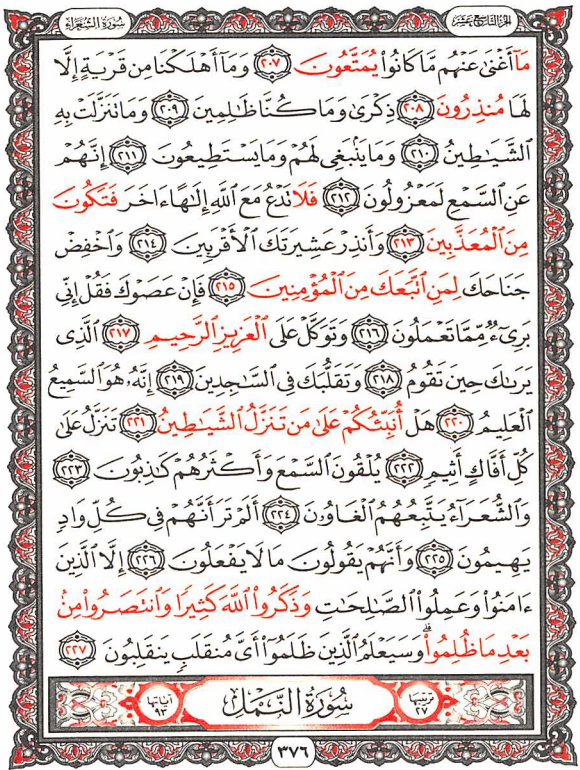 سُورَةُ الشُّعَرَاءِ الجزء التاسع عشر
مَآ أَغْنَىٰ عَنْهُم مَّا كَانُوا۟ يُمَتَّعُونَ ٢٠٧ وَمَآ أَهْلَكْنَا مِن قَرْيَةٍ إِلَّا
لَهَا مُنذِرُونَ ٢٠٨ ذِكْرَىٰ وَمَا كُنَّا ظَٰلِمِينَ ٢٠٩ وَمَا تَنَزَّلَتْ بِهِ
الشَّيَٰطِينُ ٢١٠ وَمَا يَنۢبَغِى لَهُمْ وَمَا يَسْتَطِيعُونَ ٢١١ إِنَّهُمْ
عَنِ السَّمْعِ لَمَعْزُولُونَ ٢١٢ فَلَا تَدْعُ مَعَ اللَّهِ إِلَٰهًا ءَاخَرَ فَتَكُونَ
مِنَ الْمُعَذَّبِينَ ٢١٣ وَأَنذِرْ عَشِيرَتَكَ الْأَقْرَبِينَ ٢١٤ وَاخْفِضْ
جَنَاحَكَ لِمَنِ اتَّبَعَكَ مِنَ الْمُؤْمِنِينَ ٢١٥ فَإِنْ عَصَوْكَ فَقُلْ إِنِّى
بَرِىٓءٌ مِّمَّا تَعْمَلُونَ ٢١٦ وَتَوَكَّلْ عَلَى الْعَزِيزِ الرَّحِيمِ ٢١٧ الَّذِى
يَرَىٰكَ حِينَ تَقُومُ ٢١٨ وَتَقَلُّبَكَ فِى السَّٰجِدِينَ ٢١٩ إِنَّهُۥ هُوَ السَّمِيعُ
الْعَلِيمُ ٢٢٠ هَلْ أُنَبِّئُكُمْ عَلَىٰ مَن تَنَزَّلُ الشَّيَٰطِينُ ٢٢١ تَنَزَّلُ عَلَىٰ
كُلِّ أَفَّاكٍ أَثِيمٍ ٢٢٢ يُلْقُونَ السَّمْعَ وَأَكْثَرُهُمْ كَٰذِبُونَ ٢٢٣
وَالشُّعَرَآءُ يَتَّبِعُهُمُ الْغَاوُۥنَ ٢٢٤ أَلَمْ تَرَ أَنَّهُمْ فِى كُلِّ وَادٍ
يَهِيمُونَ ٢٢٥ وَأَنَّهُمْ يَقُولُونَ مَا لَا يَفْعَلُونَ ٢٢٦ إِلَّا الَّذِينَ
ءَامَنُوا۟ وَعَمِلُوا۟ الصَّٰلِحَٰتِ وَذَكَرُوا۟ اللَّهَ كَثِيرًا وَانتَصَرُوا۟ مِنۢ
بَعْدِ مَا ظُلِمُوا۟ ۗ وَسَيَعْلَمُ الَّذِينَ ظَلَمُوٓا۟ أَىَّ مُنقَلَبٍ يَنقَلِبُونَ ٢٢٧
ترتيبها ٢٧ سُورَةُ النَّمْلِ آياتها ٩٣
٣٧٦